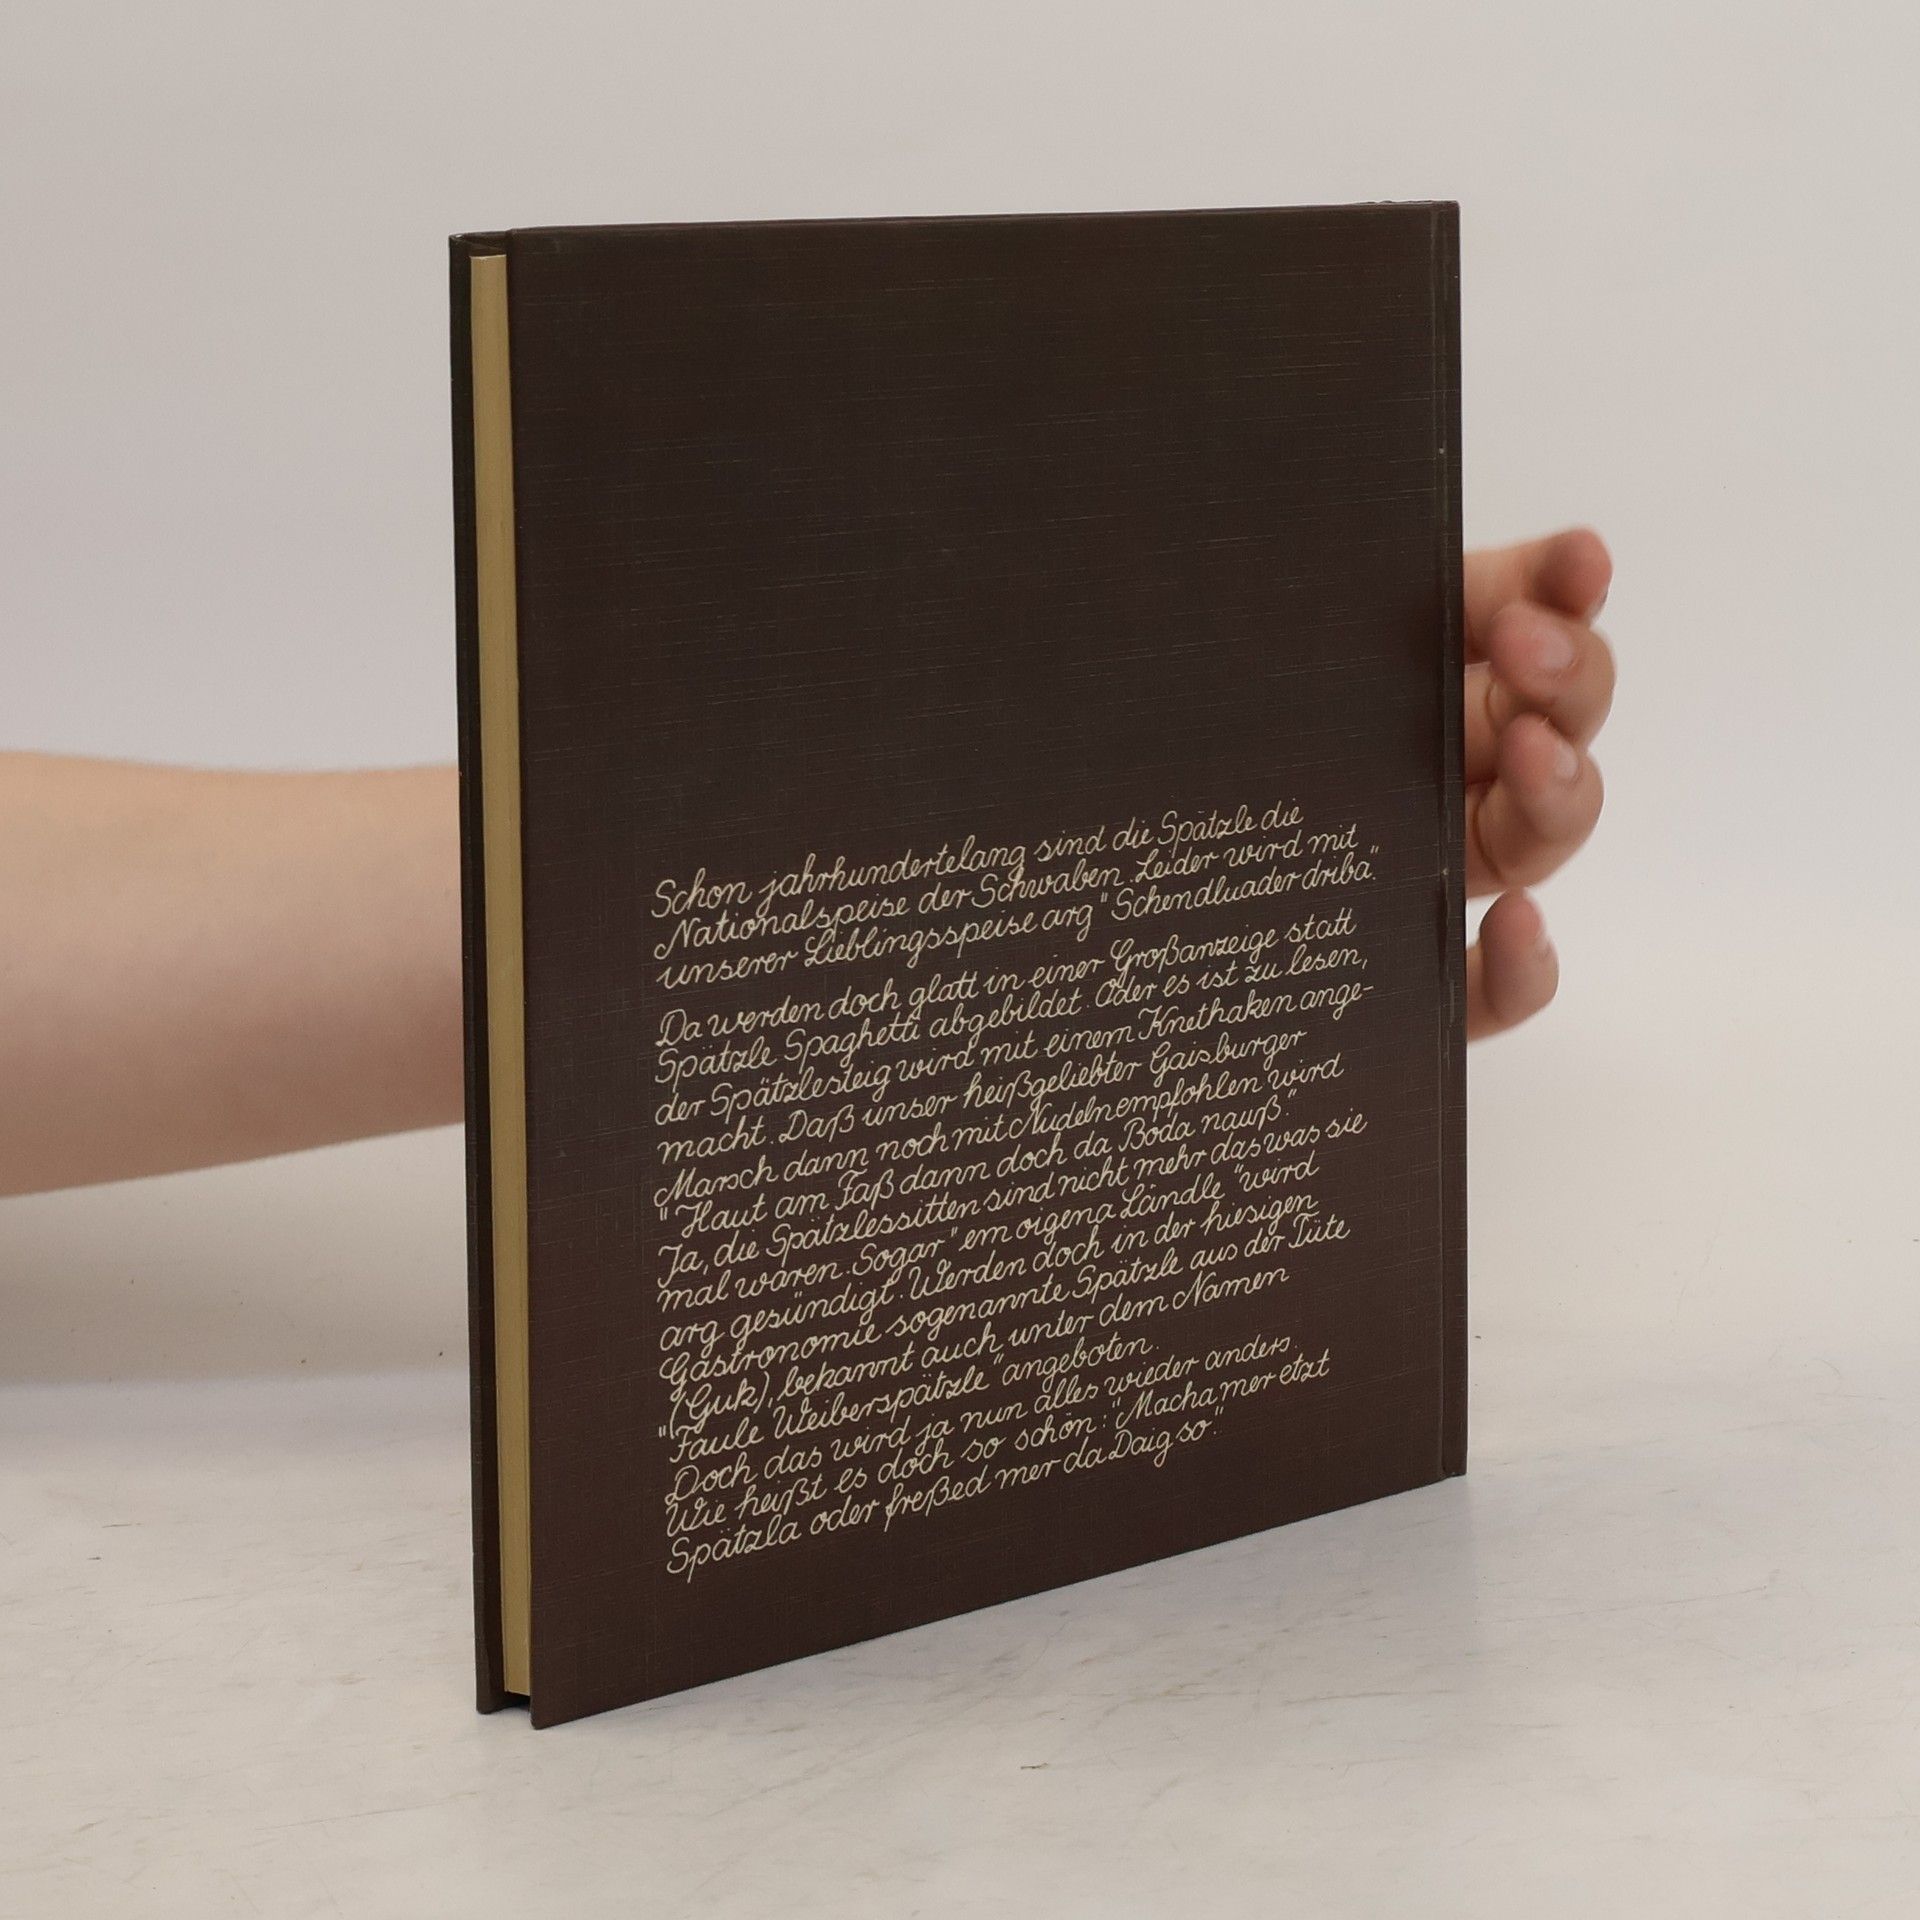 Schon jahrhundertelang sind die Spätzle die
Nationalspeise der Schwaben. Leider wird mit
unserer Lieblingsspeise arg "Schendluader driba".
Da werden doch glatt in einer Großanzeige statt
Spätzle Spaghetti abgebildet. Oder es ist zu lesen,
der Spätzlesteig wird mit einem Knethaken ange-
macht. Daß unser heißgeliebter Gaisburger
Marsch dann noch mit Nudeln empfohlen wird
"Haut am Faß dann doch da Boda nauß."
Ja, die Spätzlessitten sind nicht mehr das was sie
mal waren. Sogar "em oigena Ländle" wird
arg gesündigt. Werden doch in der hiesigen
Gastronomie sogenannte Spätzle aus der Tüte
(Guk), bekannt auch unter dem Namen
"Faule Weiberspätzle" angeboten.
Doch das wird ja nun alles wieder anders.
Wie heißt es doch so schön: "Macha mer etzt
Spätzla oder freßed mer da Daig so".